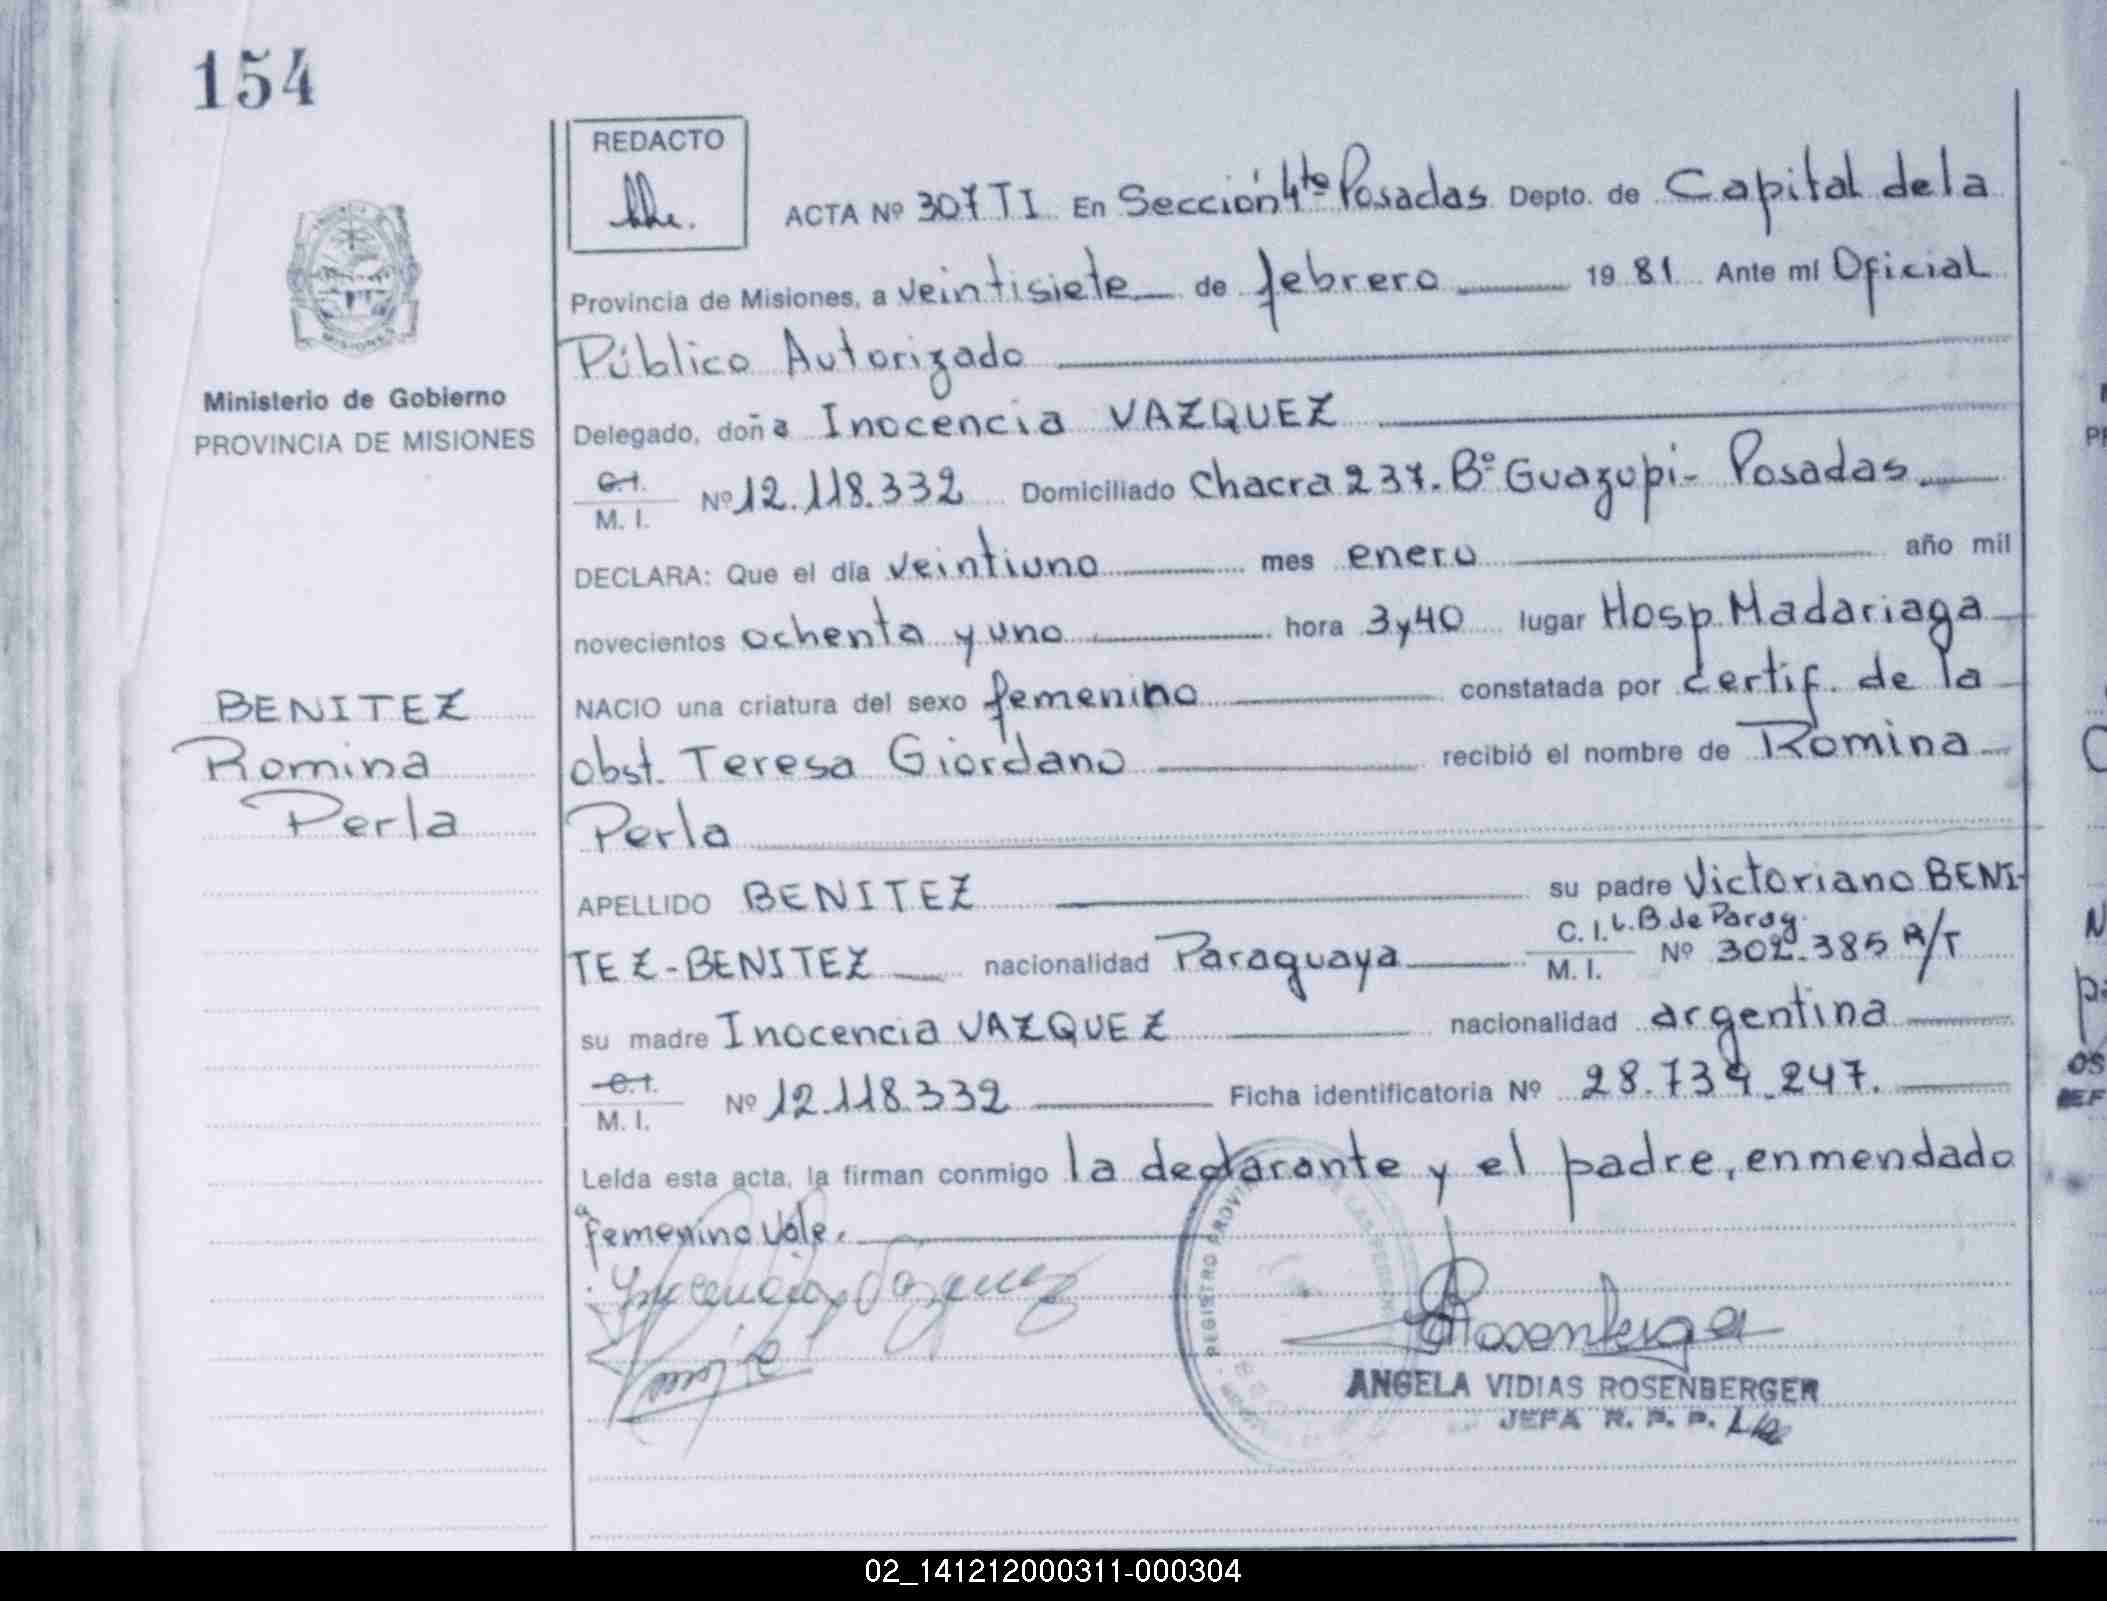 154
REDACTO
ACTA Nº 307 TI En Sección 4ta Posadas Depto. de Capital de la
Provincia de Misiones, a veintisiete de febrero 1981 Ante mí Oficial
Público Autorizado
MISIONES
Ministerio de Gobierno
PROVINCIA DE MISIONES
Delegado, doña Inocencia VAZQUEZ
C.I.
M. I. Nº 12.118.332 Domiciliado Chacra 237. Bº Guazupi- Posadas
DECLARA: Que el día veintiuno mes enero año mil
novecientos ochenta y uno hora 3 y 40 lugar Hosp. Madariaga
NACIO una criatura del sexo femenino constatada por certif. de la
obst. Teresa Giordano recibió el nombre de Romina
Perla
BENITEZ
Romina
Perla
APELLIDO BENITEZ su padre Victoriano BENI-
TEZ-BENITEZ nacionalidad Paraguaya C. I. L.B. de Parag.
M. I. Nº 302.385 R/T
su madre Inocencia VAZQUEZ nacionalidad argentina
C.I.
M. I. Nº 12.118.332 Ficha identificatoria Nº 28.734.247.
Leída esta acta, la firman conmigo la declarante y el padre, enmendado
femenino Vale.
Inocencia Vazquez
REGISTRO PROVI DE LAS PERSON
Rosenberger
ANGELA VIDIAS ROSENBERGER
JEFA R. P. P.
02_141212000311-000304